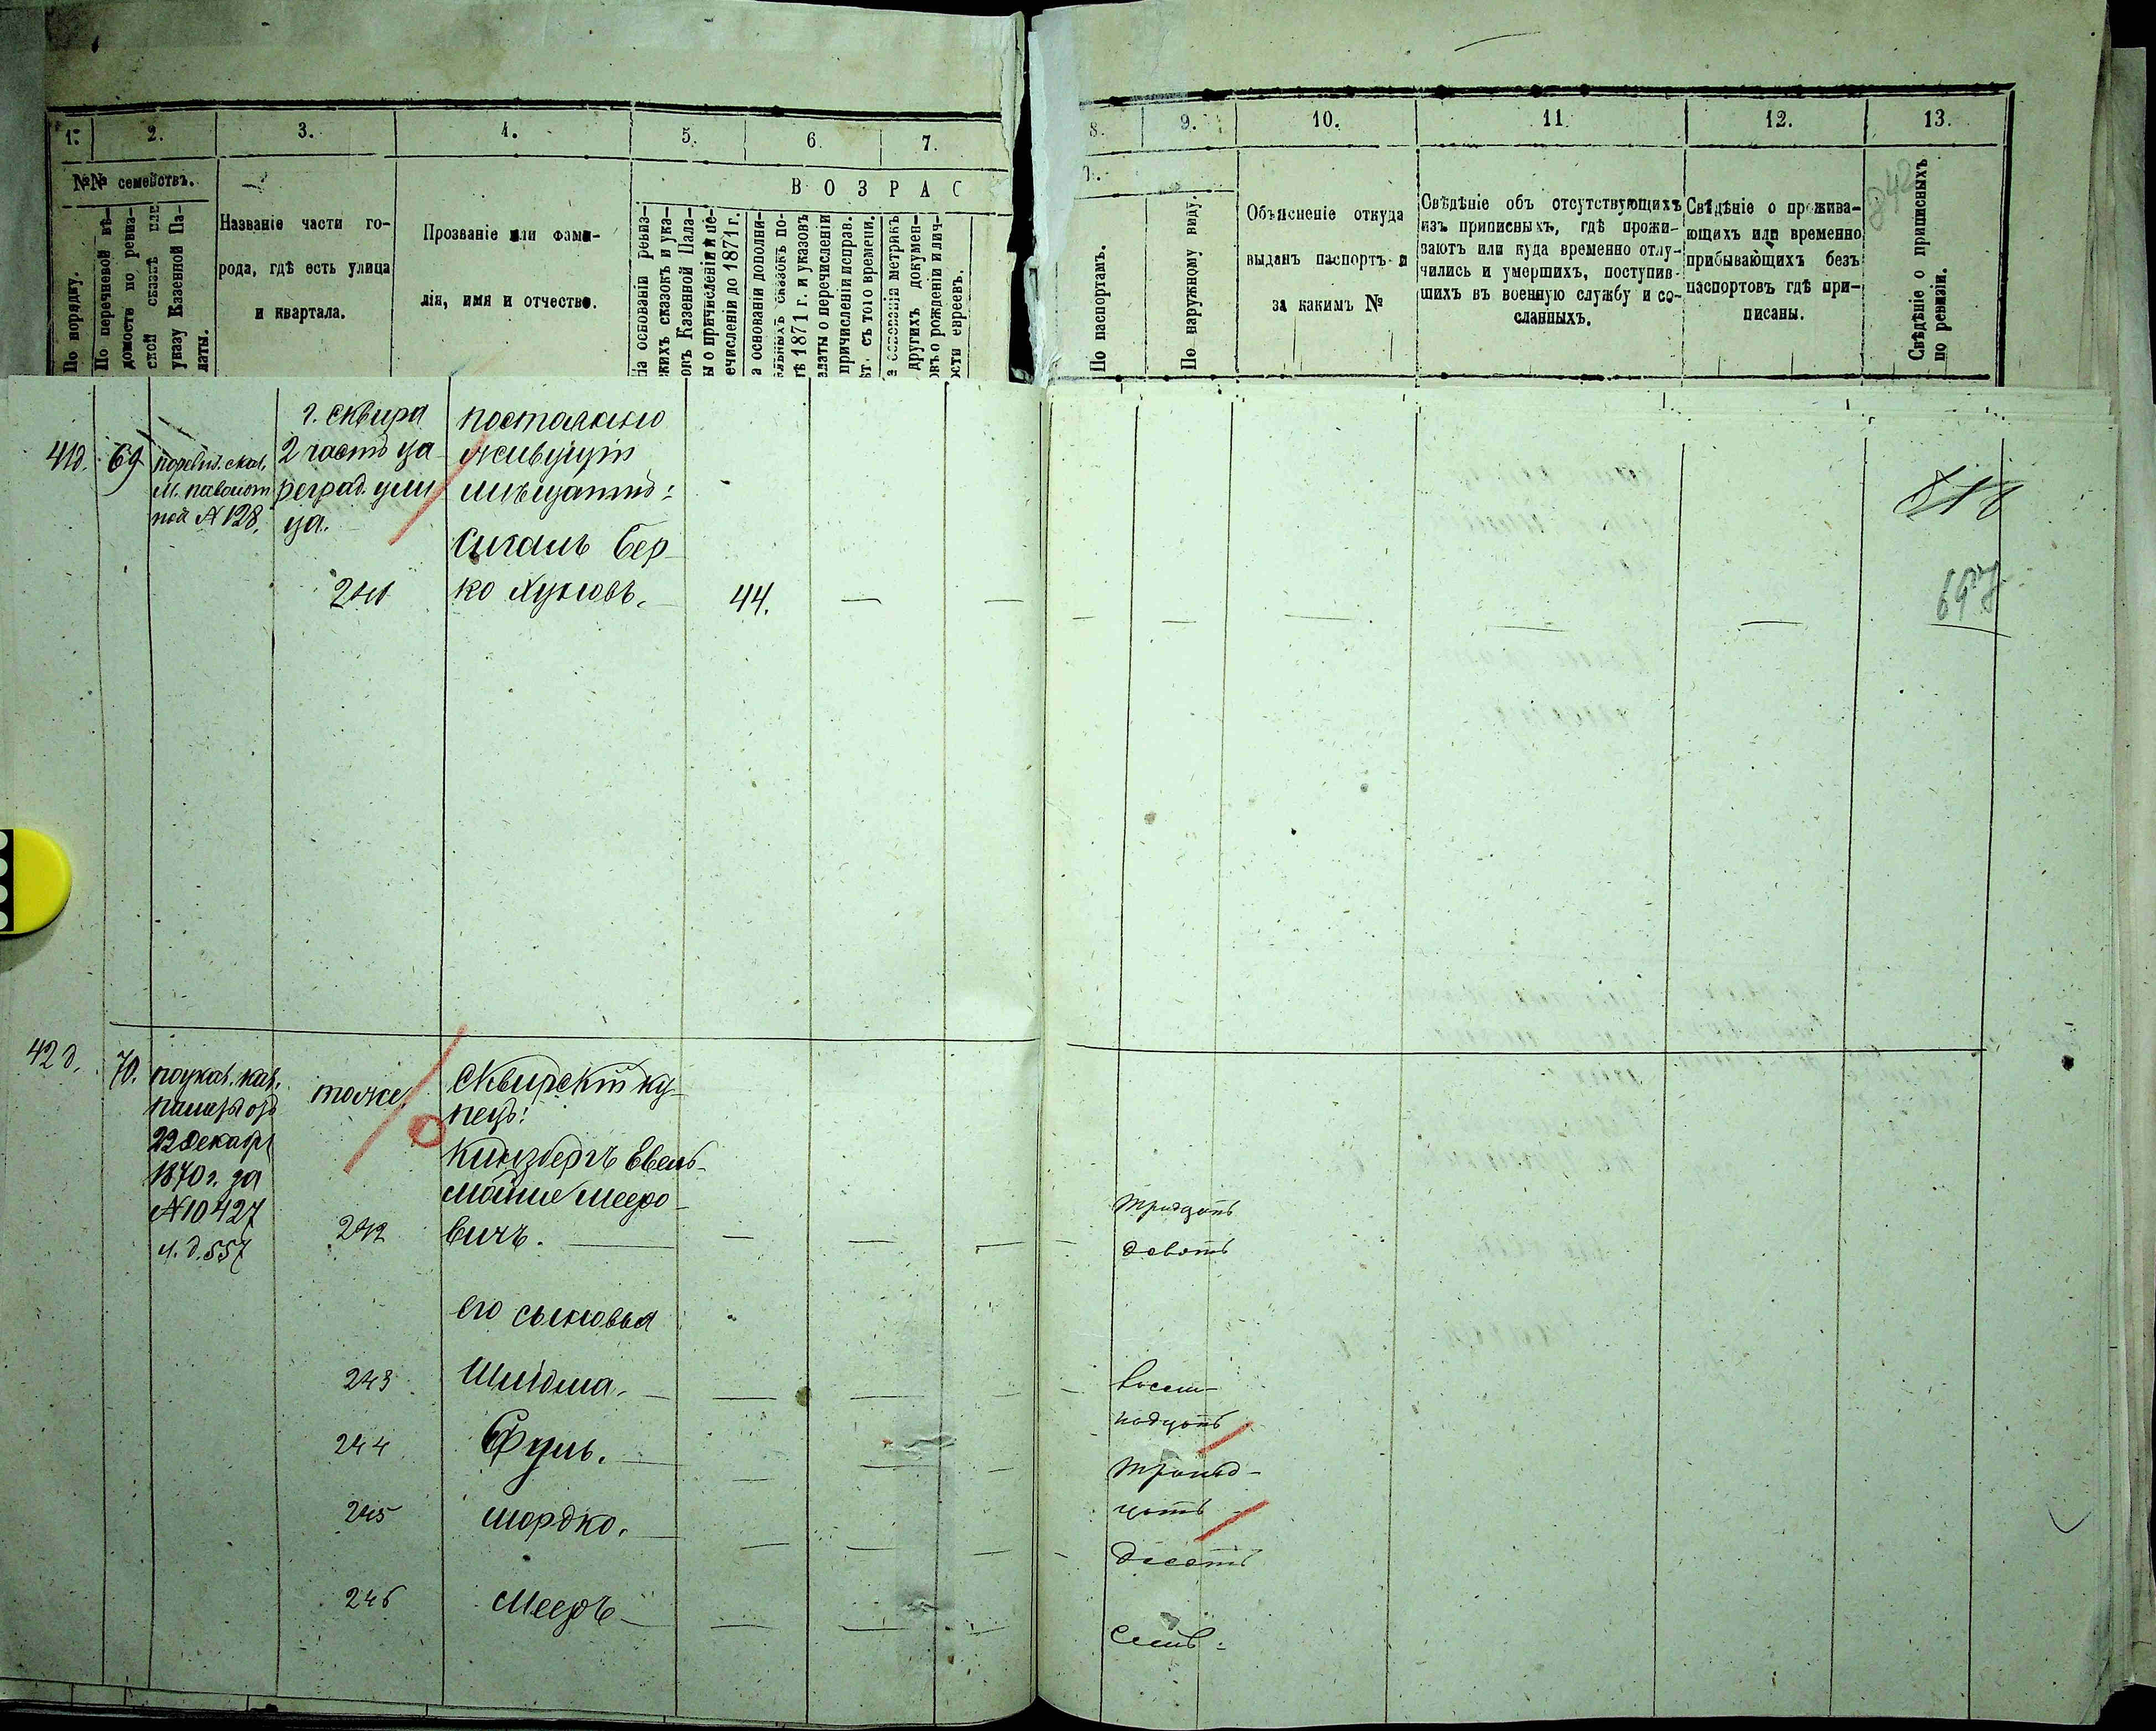 1. 2. 3. 4. 5. 6. 7.
8. 9. 10. 11. 12. 13.
№№ семействъ.
В О З Р А С
По порядку.
По перечневой вѣ-
домости по ревиз-
ской сказкѣ или
указу Казенной Па-
латы.
Названіе части го-
рода, гдѣ есть улица
и квартала.
Прозваніе или фами-
лія, имя и отчество.
На основаніи ревиз-
скихъ сказокъ и ука-
зовъ Казенной Пала-
ты о причисленіи и пе-
речисленіи до 1871 г.
На основаніи дополни-
тельныхъ сказокъ по-
слѣ 1871 г. и указовъ
палаты о перечисленіи
и причисленіи исправ.
лѣт. съ того времени.
На основаніи метрикъ
и другихъ докумен-
товъ о рожденіи и лич-
ности евреевъ.
По паспортамъ.
По наружному виду.
Объясненіе откуда
выданъ паспортъ и
за какимъ №
Свѣдѣніе объ отсутствующихъ
изъ приписныхъ, гдѣ прожи-
ваютъ или куда временно отлу-
чились и умершихъ, поступив-
шихъ въ военную службу и со-
сланныхъ.
Свѣдѣніе о прожива-
ющихъ или временно
прибывающихъ безъ
паспортовъ гдѣ при-
писаны.
Свѣдѣніе о приписныхъ
по ревизіи.
41д. 69
по ревиз. сказ.
М. паволот
ной № 128.
г. Сквира
2 часть ца
реград. ули
ца.
241
постоянно
живущій
мѣщанинъ:
Сигалъ Бер-
ко Хуновъ. 44.
697
42 д. 70.
по указ. каз.
палаты отъ
22 Декабря
1870 г. за
№ 10427
ч. д. 557
тоже
242
Сквирскій ку-
пецъ:
Кинзбергъ Евель-
Мойше Мееро-
вичъ.
тридцать
девять
его сыновья
243 Шлиома.
восем-
надцать
244 Сруль.
тринад-
цать
245 Мордко.
десять
246 Мееръ
семь